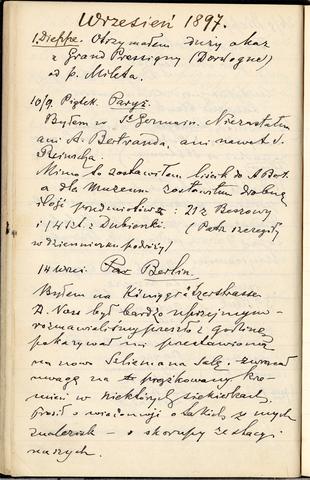 Wrzesień 1897.
1. Dieppe. Otrzymałem duży okaz
z Grand Pressigny (Dordogne)
od p. Mileta.
10/9. Piątek. Paryż.
Byłem w St Germain. Nie zastałem
ani A. Bertranda, ani nawet S.
Reinacha.
Mimo to zostawiłem liścik do A Bert.
a dla Muzeum zostawiłem drobną
ilość przedmiotów: 21 z
i 14 szt. z Dubienki. (Patrz szczegóły
w dzienniczku podróży)
14 Wrześ. Berlin.
Byłem na Königgrätzerstrasse
A. Voss był bardzo uprzejmym
rozmawialiśmy przeszło godzinę
pokazywał mi przestawioną
na nowo Szliemana Salę, zwracał
uwagę na prążkowany krze-
mień w niektórych siekierkach,
prosił o wiadomość o takich z mych
znalezisk - o skorupy ze
naszych.